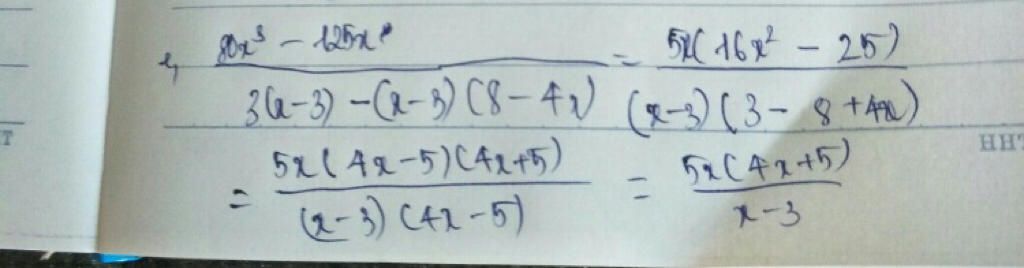 e, (80x³ - 125x) / (3(x-3) - (x-3)(8-4x)) = 5x(16x² - 25) / ((x-3)(3 - 8 + 4x))
= 5x(4x-5)(4x+5) / ((x-3)(4x-5)) = 5x(4x+5) / (x-3)